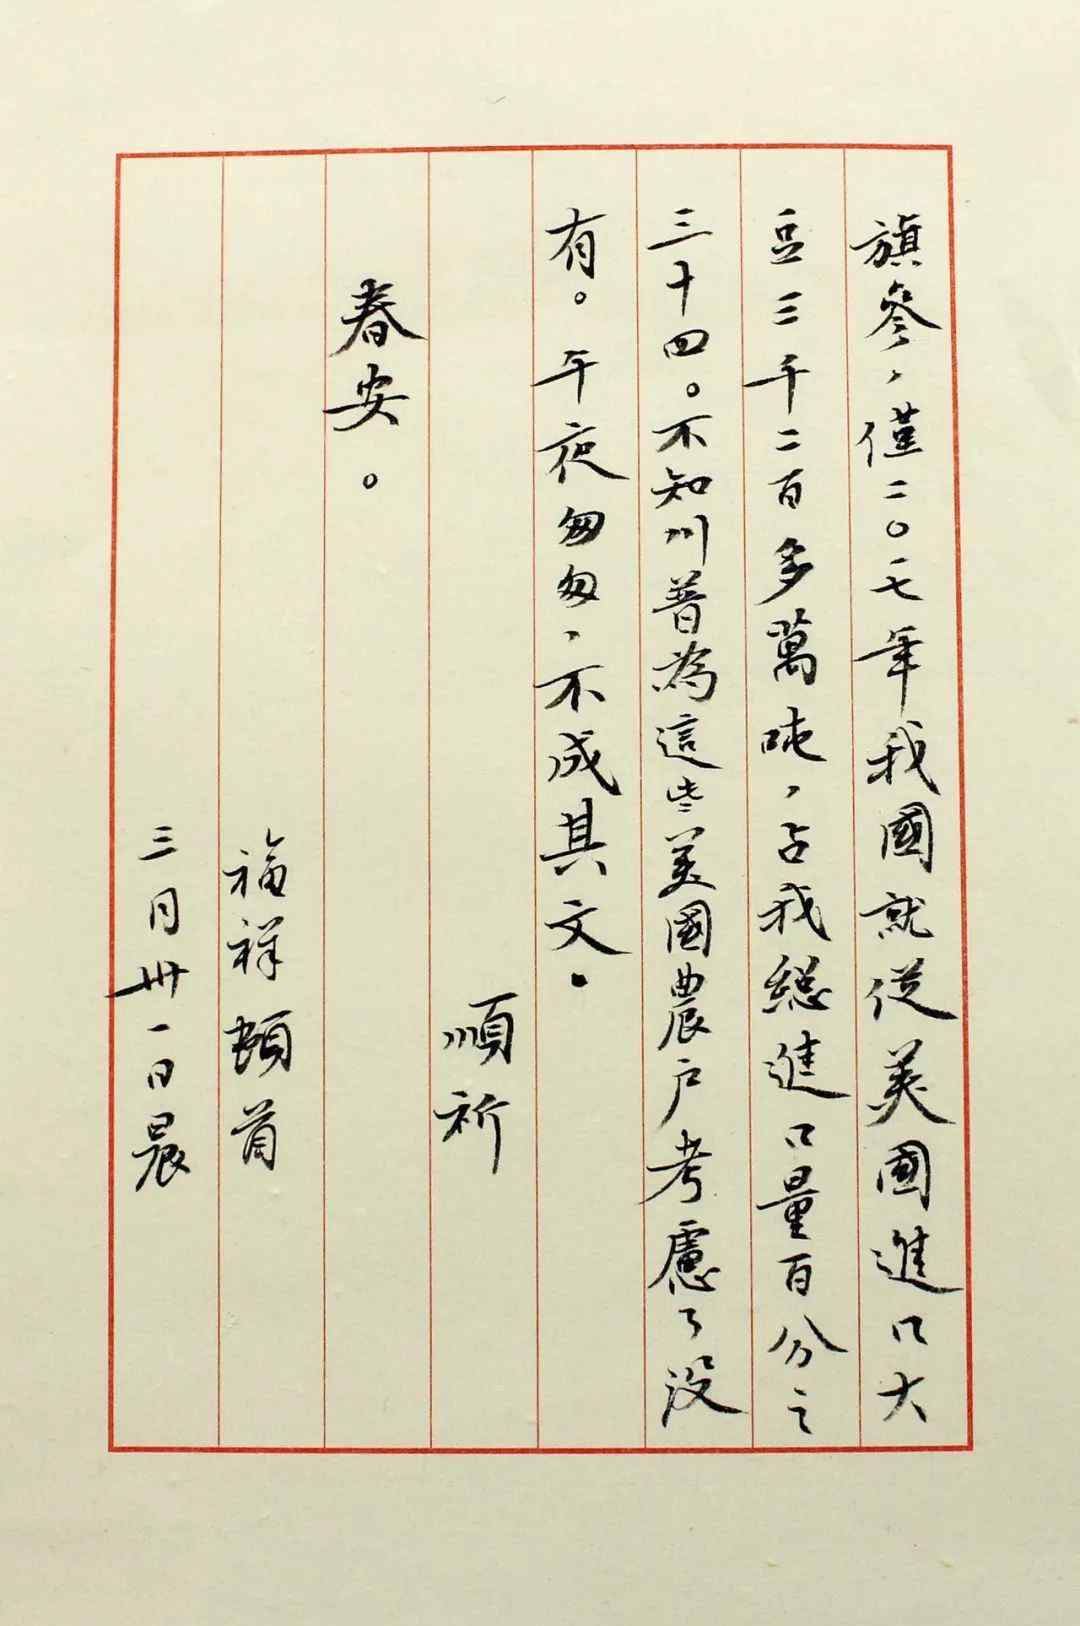 旗參，僅二〇一七年我國就從美國進口大
豆三千二百多萬吨，占我總進口量百分之
三十四。不知川普為這些美國農户考慮了没
有。午夜匆匆，不成其文。
順祈
春安。
福祥頓首
三月卅一日晨